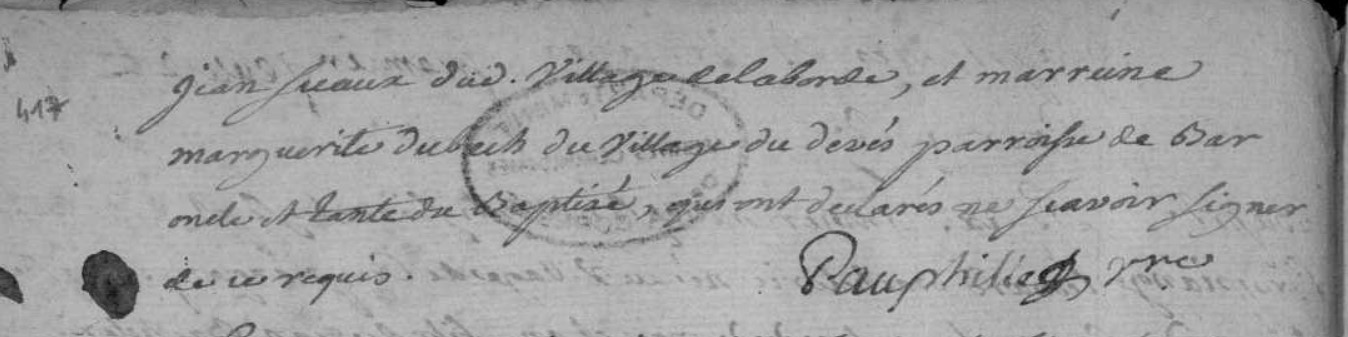 jean sicaux dud. Village delaborde, et marreine
417
marguerite dubech du Village du devés parroisse de Bar
oncle et tante du Baptisé, qui ont declarés ne scavoir signer
de ce requis. Pauphilie pre